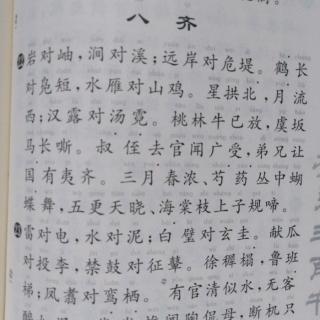 八 齐
岩对岫，涧对溪；远岸对危堤。鹤长
对凫短，水雁对山鸡。星拱北，月流
西；汉露对汤霓。桃林牛已放，虞坂
马长嘶。叔侄去官闻广受，弟兄让
国有夷齐。三月春浓、芍药丛中蝴
蝶舞，五更天晓、海棠枝上子规啼。
雷对电，水对泥；白璧对玄圭。献瓜
对投李，禁鼓对征鼙。徐稚榻，鲁班
梯；凤翥对鸾栖。有官清似水，无客